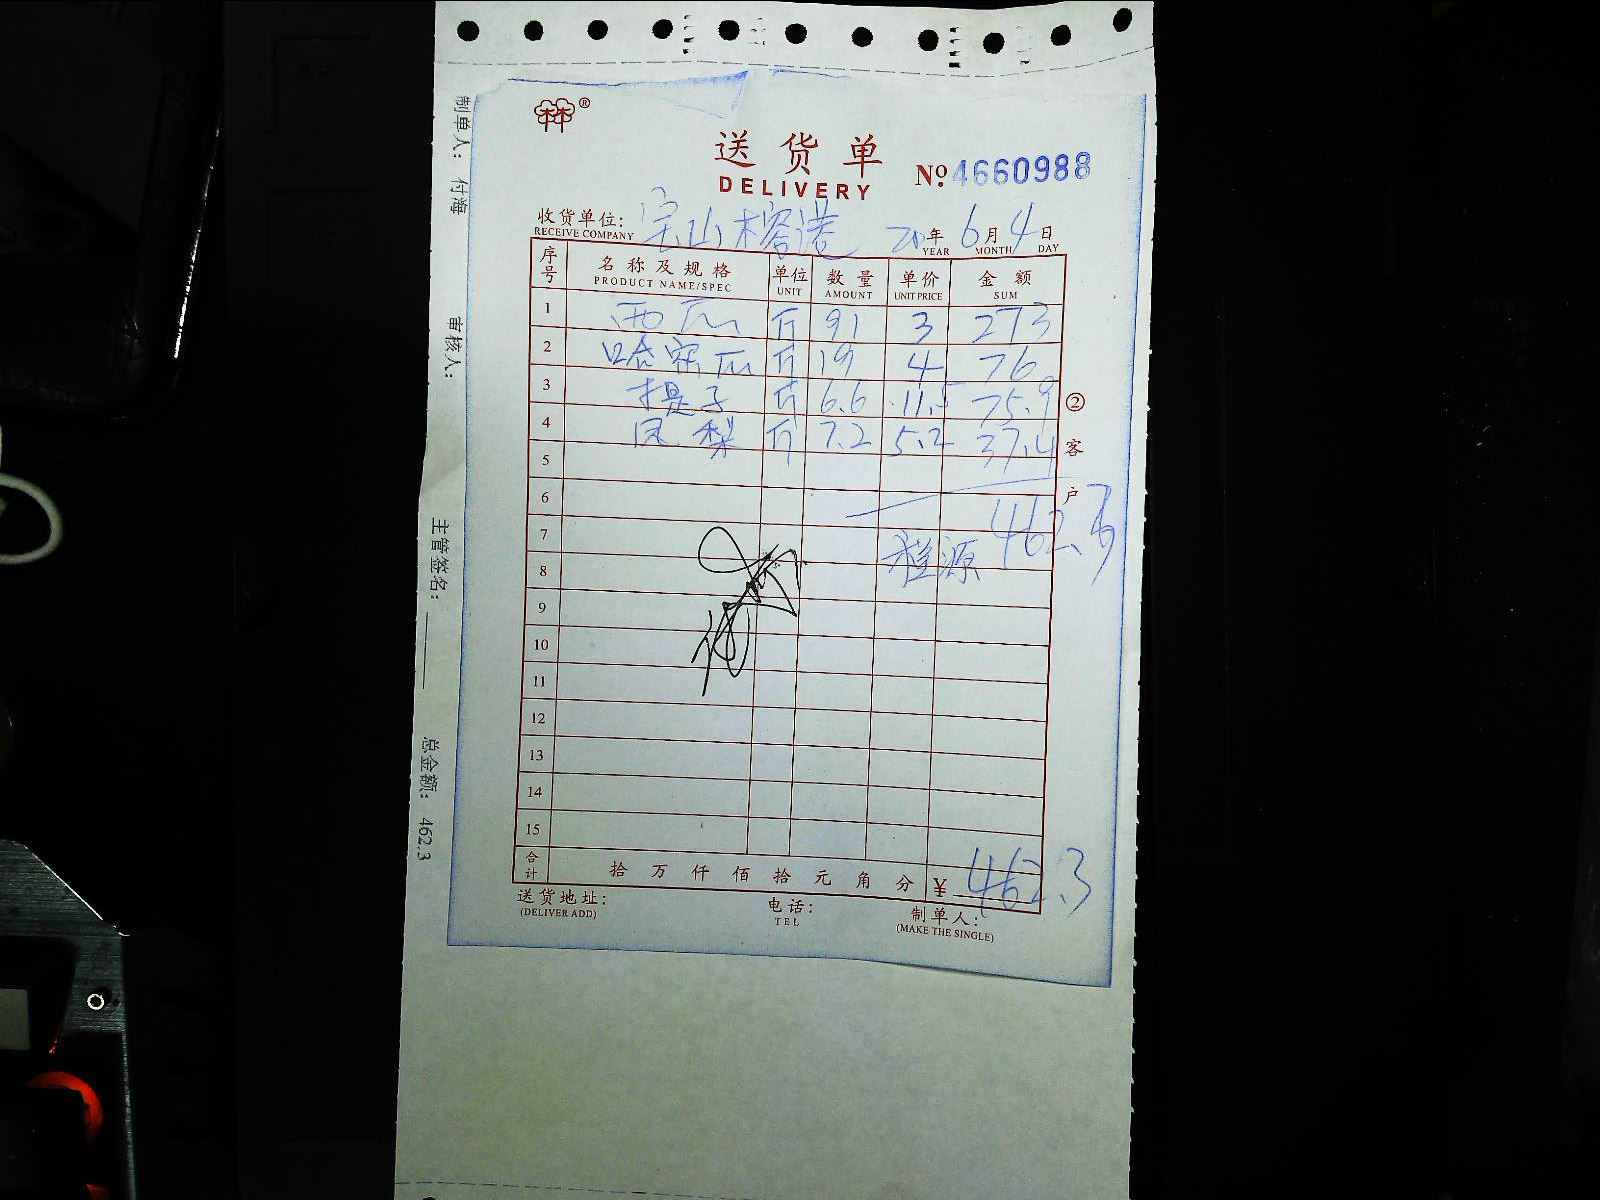 制单人： 付海
审核人：
主管签名：
总金额： 462.3
送货单
DELIVERY
Nº 4660988
收货单位： 宝山榕港 20年 6月 4日
RECEIVE COMPANY YEAR MONTH DAY
序号 名称及规格 单位 数量 单价 金额
PRODUCT NAME/SPEC UNIT AMOUNT UNIT PRICE SUM
1 西瓜 斤 91 3 273
2 哈密瓜 斤 19 4 76
3 提子 斤 6.6 11.5 75.9
4 凤梨 斤 7.2 5.2 37.4
5
6
7
8
9
10
11
12
13
14
15
462.3
程源
② 客户
合计 拾 万 仟 佰 拾 元 角 分 ¥ 462.3
送货地址： 电话： 制单人：
(DELIVER ADD) TEL (MAKE THE SINGLE)